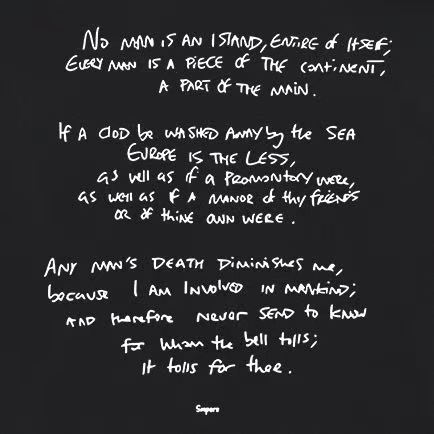 No man is an island, entire of itself;
Every man is a piece of the continent,
a part of the main.
If a clod be washed away by the sea
Europe is the less,
as well as if a promontory were,
as well as if a manor of thy friends
or of thine own were.
Any man's death diminishes me,
because I am involved in mankind;
and therefore never send to know
for whom the bell tolls;
it tolls for thee.